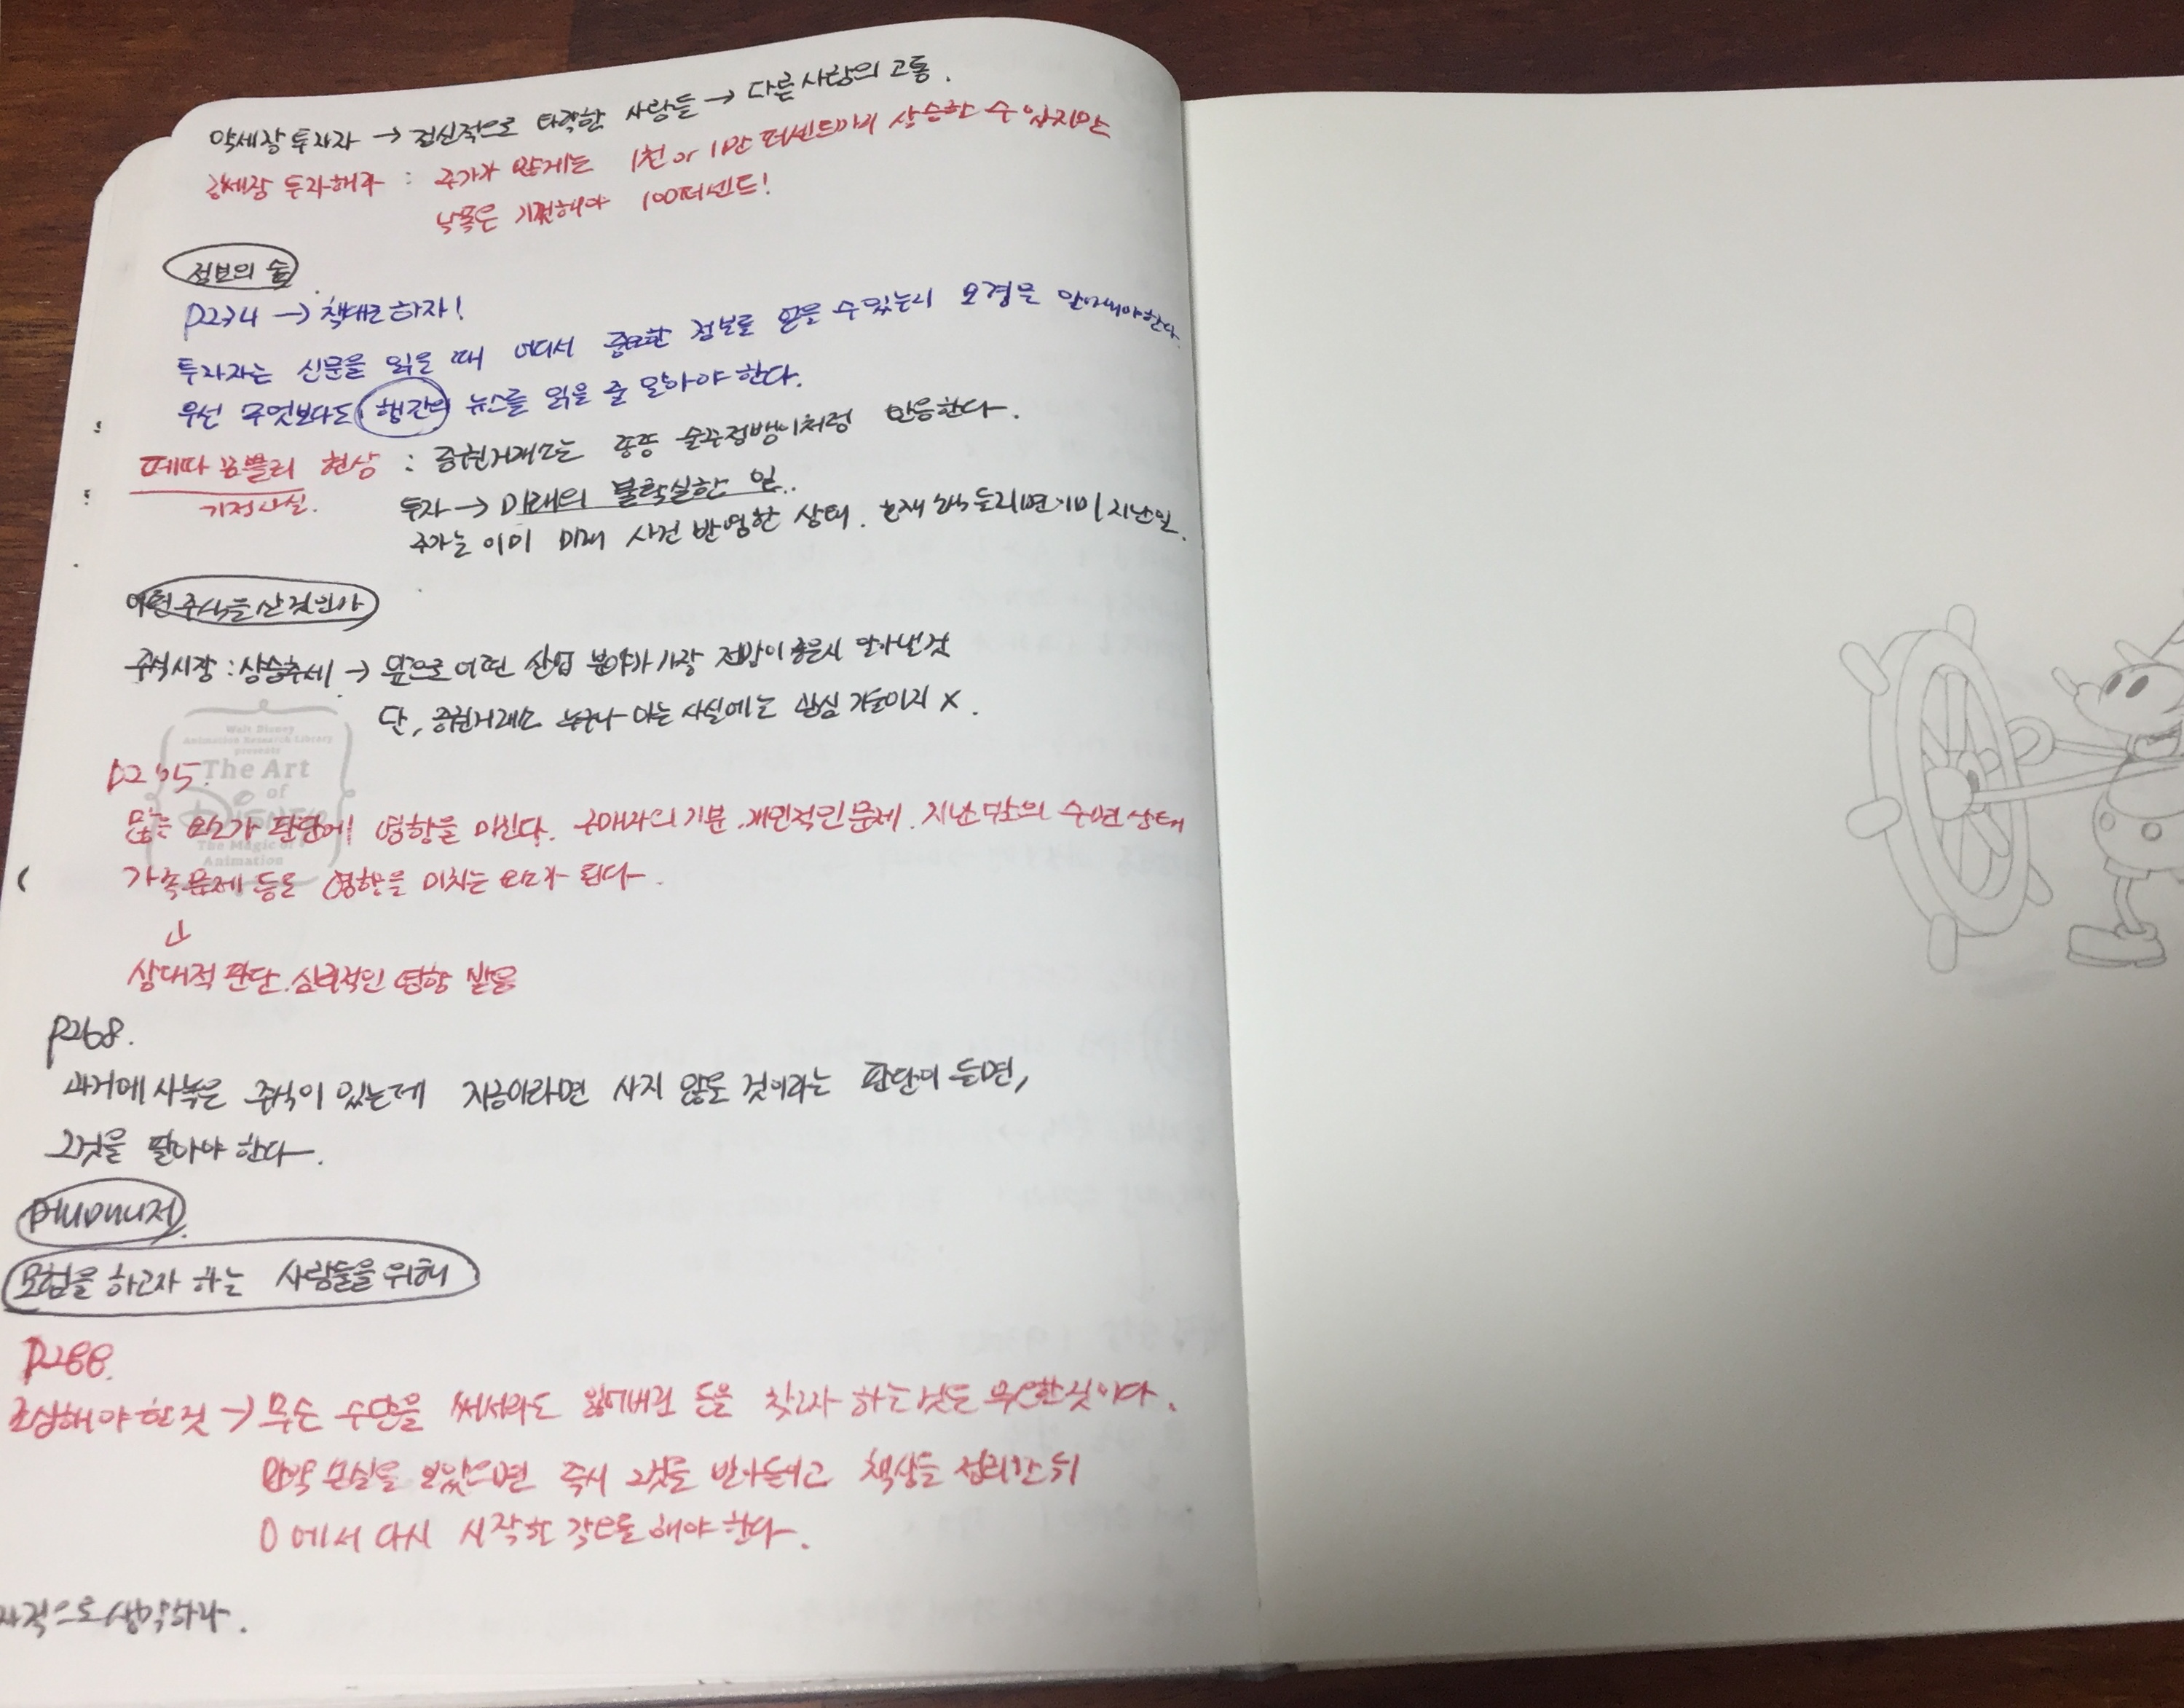 약세장 투자자 → 정신적으로 타락한 사람들 → 다른 사람의 고통.
강세장 투자해라 : 주가가 많게는 1천 or 1만 퍼센트까지 상승할 수 있지만
낙폭은 기껏해야 100퍼센트!
정보의 숲
P234 → 책대로 하자!
투자자는 신문을 읽을 때 어디서 중요한 정보를 얻을 수 있는지 요령을 알아내야한다.
우선 무엇보다도 행간의 뉴스를 읽을 줄 알아야 한다.
페따 꼼쁠리 현상 : 증권거래소는 종종 술주정뱅이처럼 반응한다.
기정사실.
투자 → 미래의 불확실한 일..
주가는 이미 미래 사건 반영한 상태. 현재 들리면 이미 지난일.
어떤 주식을 살것인가
주식시장 : 상승추세 → 앞으로 어떤 산업 분야가 가장 전망이 좋은지 알아낼것
단, 증권거래소 누구나 아는 사실에는 관심 기울이지 X.
Walt Disney
Animation Research Library
presents
The Art
of
DISNEY
The Magic of
Animation
많은 요소가 판단에 영향을 미친다. 구매자의 기분. 개인적인 문제. 지난 밤의 수면 상태
가족문제 등도 영향을 미치는 요소가 된다.
↓
상대적 판단. 심리적인 영향 받음
P268.
과거에 사놓은 주식이 있는데 지금이라면 사지 않을 것이라는 판단이 들면,
그것을 팔아야 한다.
머니매니저
모험을 하고자 하는 사람들을 위해
P288.
조심해야 할것 → 무슨 수단을 써서라도 잃어버린 돈을 찾고자 하는것은 무모한짓이다.
만약 손실을 보았으면 즉시 그것을 받아들이고 책상을 정리한 뒤
0에서 다시 시작할 각오를 해야 한다.
적으로 생각하라.